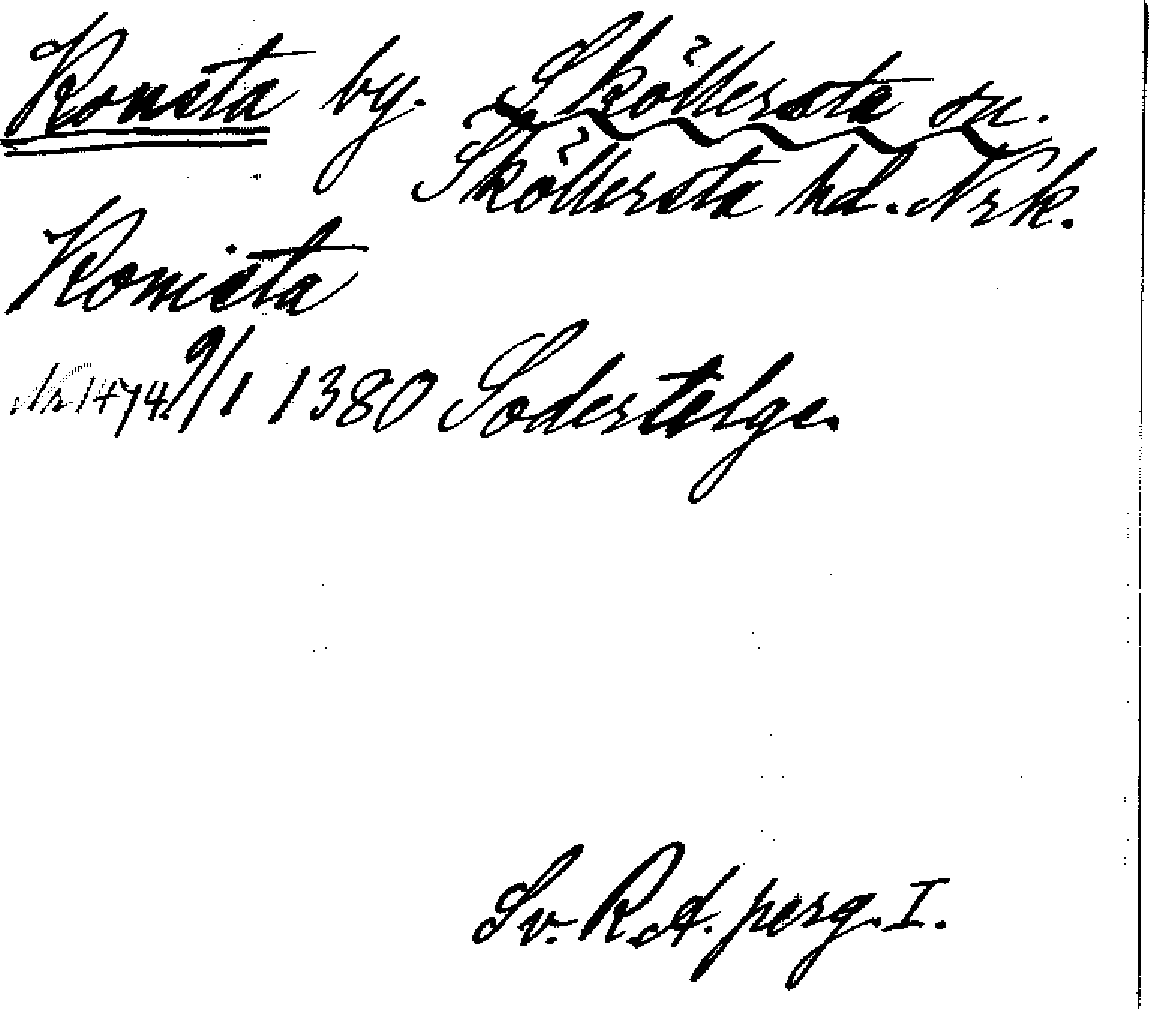 Konsta by. Sköllersta sn.
Sköllersta hd. Nrk.
Konista
Nr 1474. 9/1 1380 Sodertelge.
Sv. R.A. perg. I.